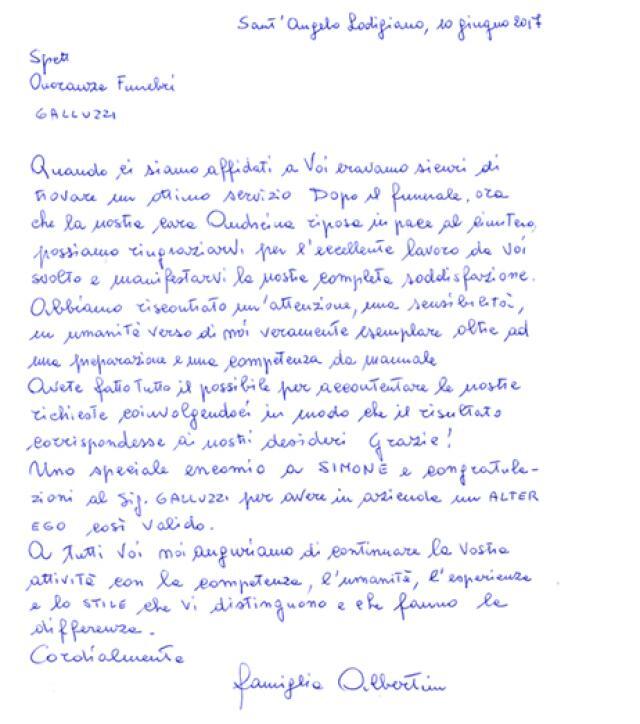 Sant'Angelo Lodigiano, 10 giugno 2017
Spett
Onoranze Funebri
GALLUZZI
Quando ci siamo affidati a Voi eravamo sicuri di
trovare un ottimo servizio Dopo il funerale, ora
che la nostra cara Andreina riposa in pace al cimitero,
possiamo ringraziarvi per l'eccellente lavoro da voi
svolto e manifestarvi la nostra completa soddisfazione.
Abbiamo riscontrato un'attenzione, una sensibilità,
un umanità verso di noi veramente esemplare oltre ad
una preparazione e una competenza da manuale
Avete fatto tutto il possibile per accontentare le nostre
richieste coinvolgendoci in modo che il risultato
corrispondesse ai nostri desideri Grazie!
Uno speciale encomio a SIMONE e congratula-
zioni al Sig. GALLUZZI per avere in azienda un ALTER
EGO così valido.
A tutti Voi noi auguriamo di continuare la Vostra
attività con la competenza, l'umanità, l'esperienza
e lo STILE che vi distinguono e che fanno la
differenza.
Cordialmente
famiglia Albertini